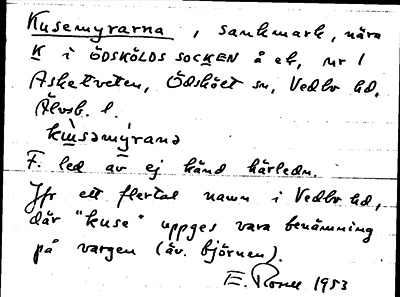 Kusemyrarna, sankmark, nära
K i ÖDSKÖLDS SOCKEN å ek, nr 1
Askettveten, Ödsköet sn, Vedbo hd,
Älvsb. l.
kɯ̀sǝmýranǝ
F. led av ej känd härledn.
Jfr ett flertal namn i Vedbo hd,
där "kuse" uppges vara benämning
på vargen (äv. björnen).
E. Rosell 1953